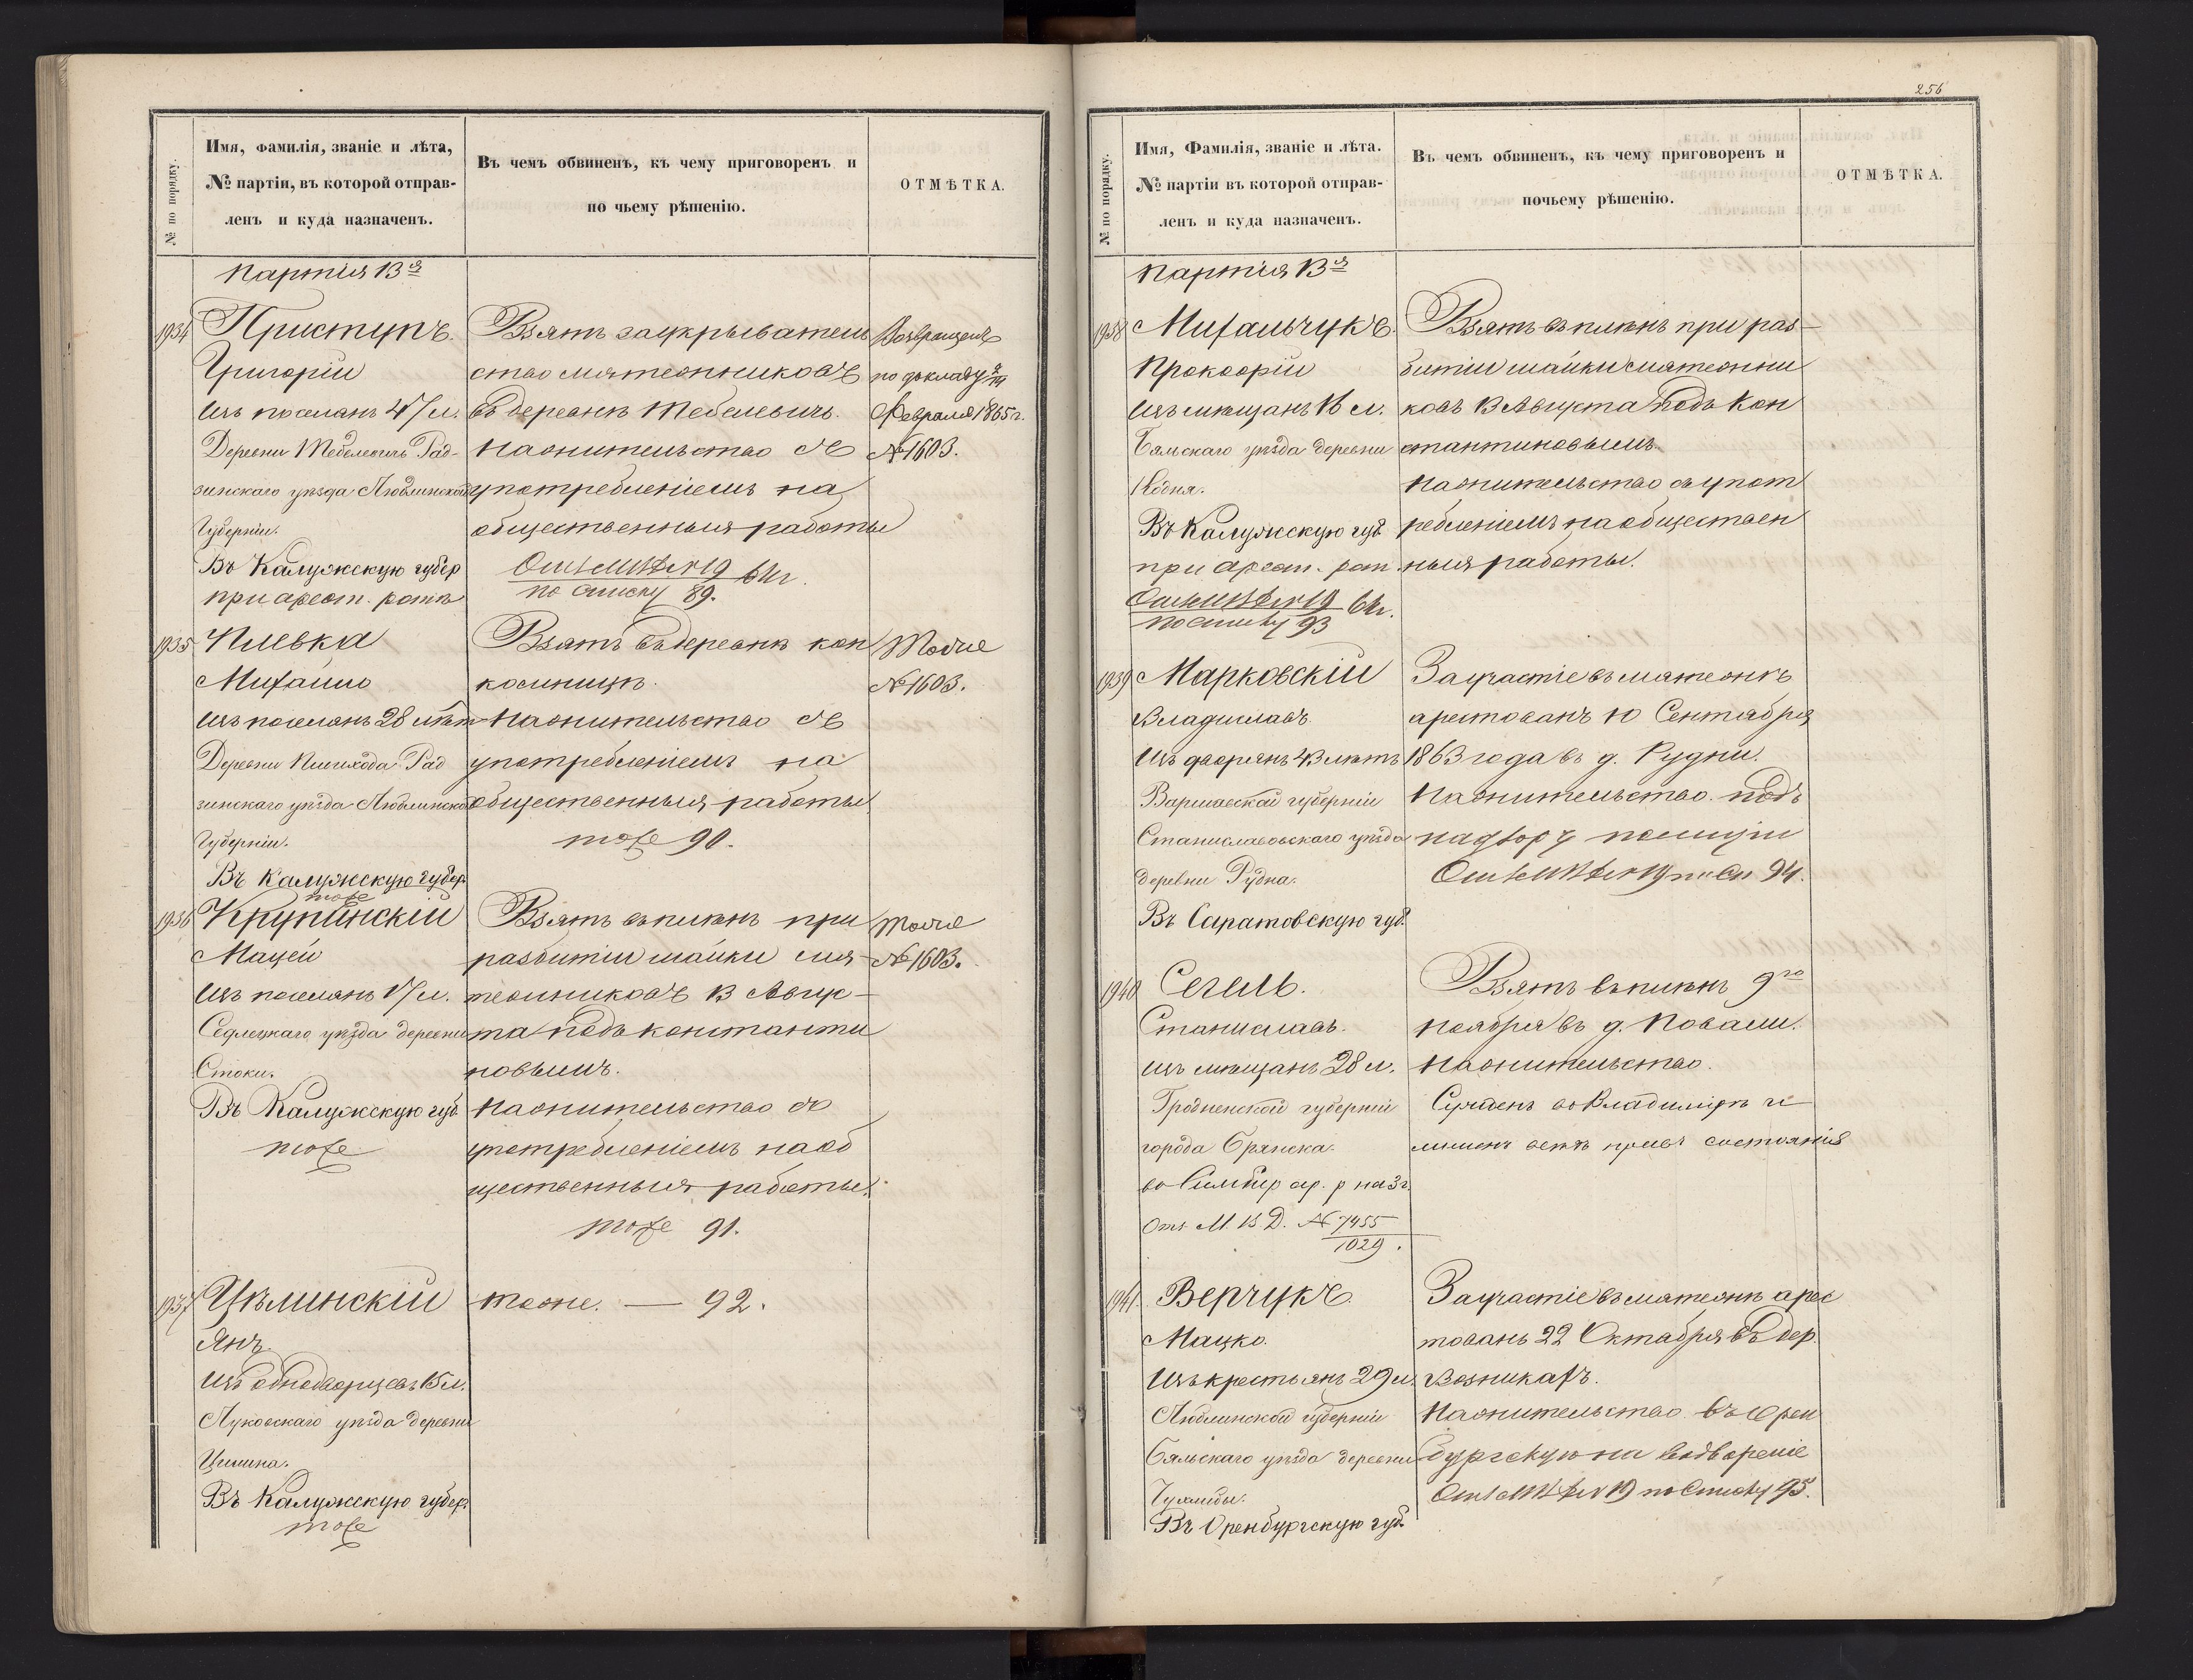 256
№ по порядку.
Имя, фамилія, званіе и лѣта,
№ партіи, въ которой отправ-
ленъ и куда назначенъ.
Въ чемъ обвиненъ, къ чему приговоренъ и
по чьему рѣшенію.
ОТМѢТКА.
Партія 13я
1934
Приступъ.
Григорій
Изъ поселянъ 47 л.
Деревни Тебелевичъ Рад-
зинскаго уѣзда Люблинской
Губерніи.
Въ Калужскую губер
при арест. ротѣ
Взятъ за укрыватель
ство мятежниковъ
въ деревнѣ Тебелевичъ.
На жительство съ
употребленіемъ на
общественныя работы
19 64 г.
по списку 89.
Возвращенъ
по докладу
Февраля 1865 г.
№ 1603.
1935
Пивка
Михайло
Изъ поселянъ 28 лѣтъ
Деревни Рад
зинскаго уѣзда Люблинской
Губерніи.
Въ Калужскую губер.
тоже
Взятъ въ деревнѣ Кон
коминицѣ.
На жительство съ
употребленіемъ на
общественныя работы
тоже 90.
Тоже
№ 1603.
1936
Крупинскій
Мацей
Изъ поселянъ 17 л.
Седлецкаго уѣзда деревни
Стоки.
Въ Калужскую губ.
тоже
Взятъ въ плѣнъ при
разбитіи шайки мя-
тежниковъ 13 Авгус-
та подъ Константи
новымъ.
На жительство съ
употребленіемъ на об
щественныя работы.
тоже 91.
Тоже
№ 1603.
1937
Цѣлинскій
Янъ.
Изъ однодворцевъ 15 л.
Луковскаго уѣзда деревни
Целина.
Въ Калужскую губер.
тоже
тоже. — 92.
№ по порядку.
Имя, Фамилія, званіе и лѣта.
№ партіи въ которой отправ-
ленъ и куда назначенъ.
Въ чемъ обвиненъ, къ чему приговоренъ и
почьему рѣшенію.
ОТМѢТКА.
Партія 13я
1938
Михальчукъ.
Прокофій
Изъ мѣщанъ 16 л.
Бяльскаго уѣзда деревни
Въ Калужскую губ.
при арест. рот.
19 64 г.
по списку 93
Взятъ въ плѣнъ при раз-
битіи шайки мятежни
ковъ 13 Августа подъ Кон
стантиновымъ.
На жительство съ упот
ребленіемъ на обществен
ныя работы.
1939
Марковскій
Владиславъ.
Изъ дворянъ 43 лѣтъ
Варшавской губерніи
Станиславовскаго уѣзда
деревни Рудна.
Въ Саратовскую губ.
За участіе въ мятежѣ
арестованъ 10 Сентября
1863 года въ д. Рудни.
На жительство подъ
надзору полиціи
19 по Сп 94.
1940
Сегель.
Станиславъ.
изъ мѣщанъ 28 л.
Гродненской губерніи
города Брянска.
во Симбир ар. р на 3 г.
Отъ М. В Д. № 7455
1029.
Взятъ въ плѣнъ 9го
Ноября въ д. Поваши.
На жительство.
Сужденъ во Владимірѣ и
лишенъ всѣхъ правъ состоянія
1941
Верчукъ.
Мацко.
Изъ крестьянъ 29 л.
Люблинской губерніи
Бяльскаго уѣзда деревни
Въ Оренбургскую губ.
За участіе въ мятежѣ арес
тованъ 22 Октября въ дер.
Возникахъ.
На жительство въ Орен
бургскую на водвореніе
19 по Списку 95.